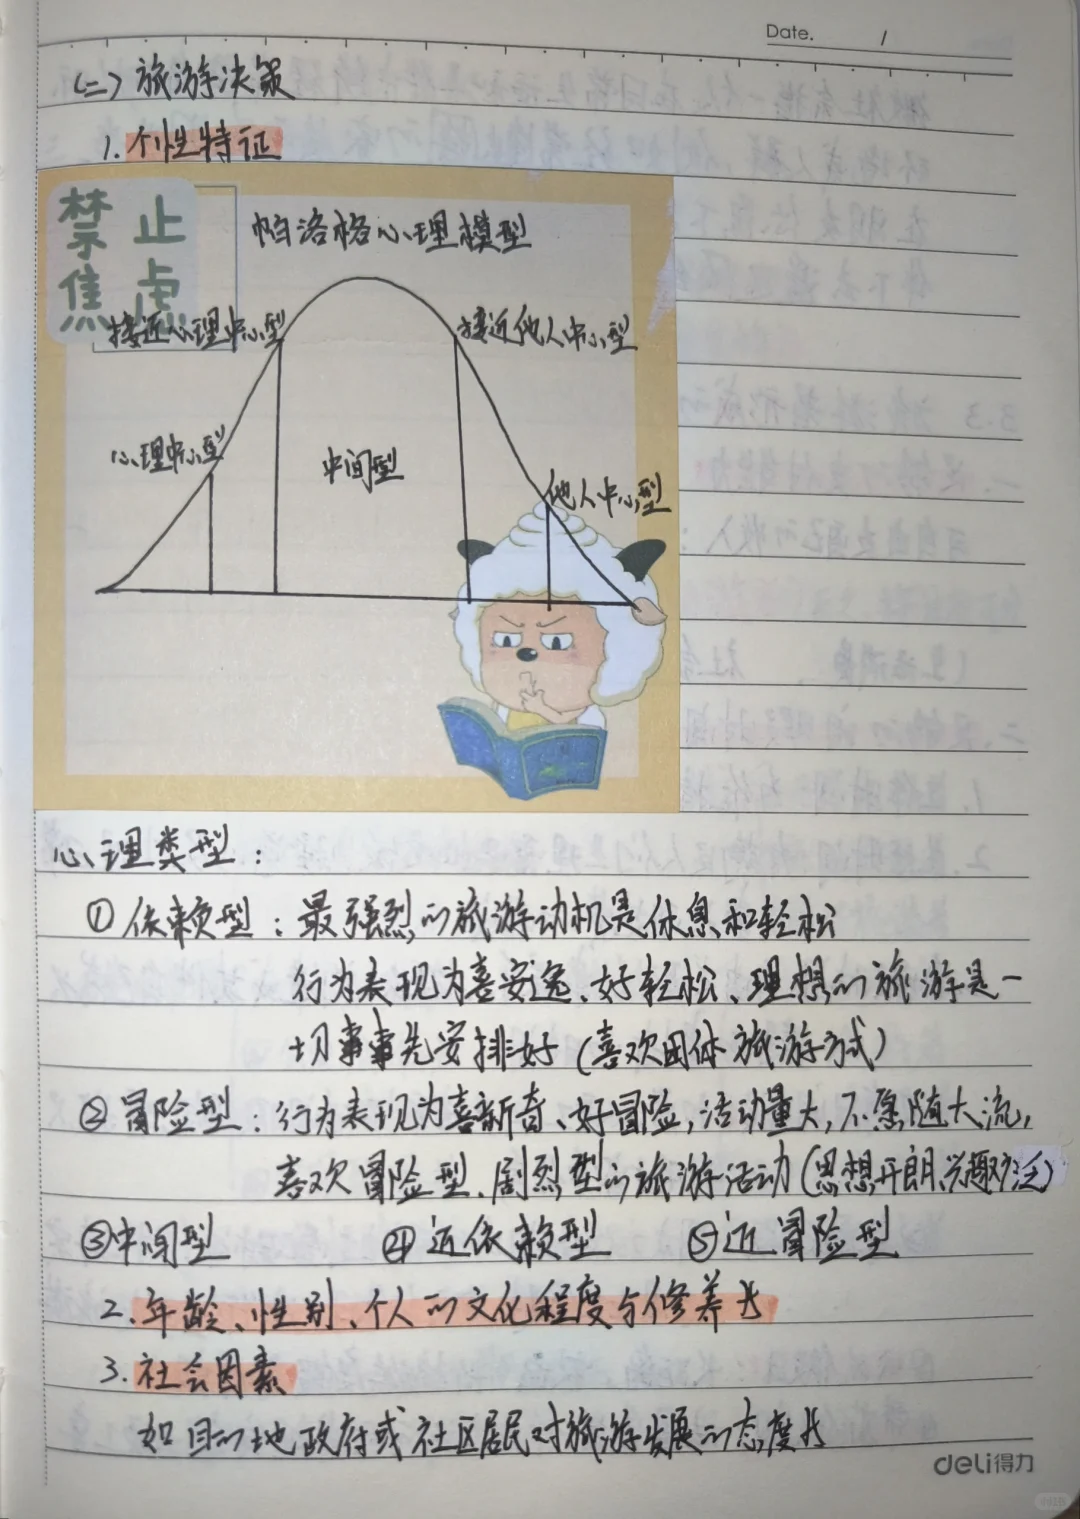 Date. /
(二) 旅游决策
1. 个性特征
禁止
焦虑
帕洛格心理模型
接近心理中心型
接近他人中心型
心理中心型
中间型
他人中心型
心理类型:
① 依赖型: 最强烈的旅游动机是休息和轻松
行为表现为喜安逸、好轻松、理想的旅游是一
切事事先安排好(喜欢团体旅游方式)
② 冒险型: 行为表现为喜新奇、好冒险,活动量大,不愿随大流,
喜欢冒险型、剧烈型的旅游活动(思想开朗、兴趣广泛)
③中间型 ④ 近依赖型 ⑤近冒险型
2. 年龄、性别、个人的文化程度与修养
3. 社会因素
如目的地政府或社区居民对旅游发展的态度
deli得力
小红书